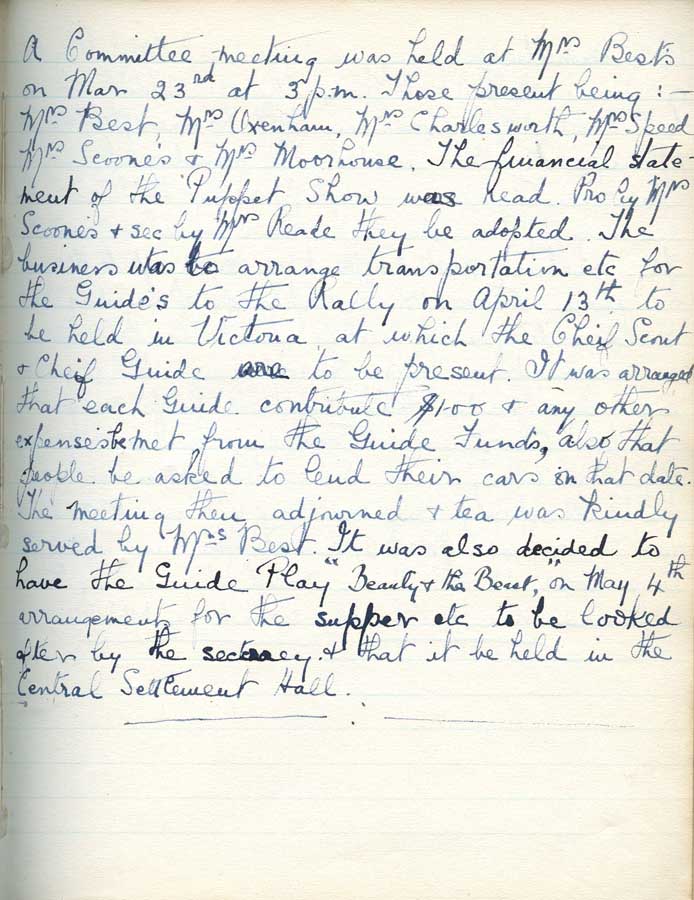 A Committee meeting was held at Mrs Best's
on Mar 23rd at 3 p.m. Those present being :-
Mrs Best, Mrs Oxenham, Mrs Charlesworth, Mrs Speed
Mrs Scoones & Mrs Moorhouse. The financial state-
ment of the Puppet Show was read. Pro by Mrs
Scoones & sec by Mrs Reade they be adopted. The
business was to arrange transportation etc for
the Guide's to the Rally on April 13th to
be held in Victoria at which the Cheif Scout
& Cheif Guide are to be present. It was arranged
that each Guide contribute $1.00 & any other
expenses be met from the Guide Funds, also that
people be asked to lend their cars on that date.
The meeting then adjourned & tea was kindly
served by Mrs Best. It was also decided to
have the Guide Play "Beauty & the Beast," on May 4th
arrangements for the supper etc to be looked
after by the secretary. & that it be held in the
Central Settlement Hall.